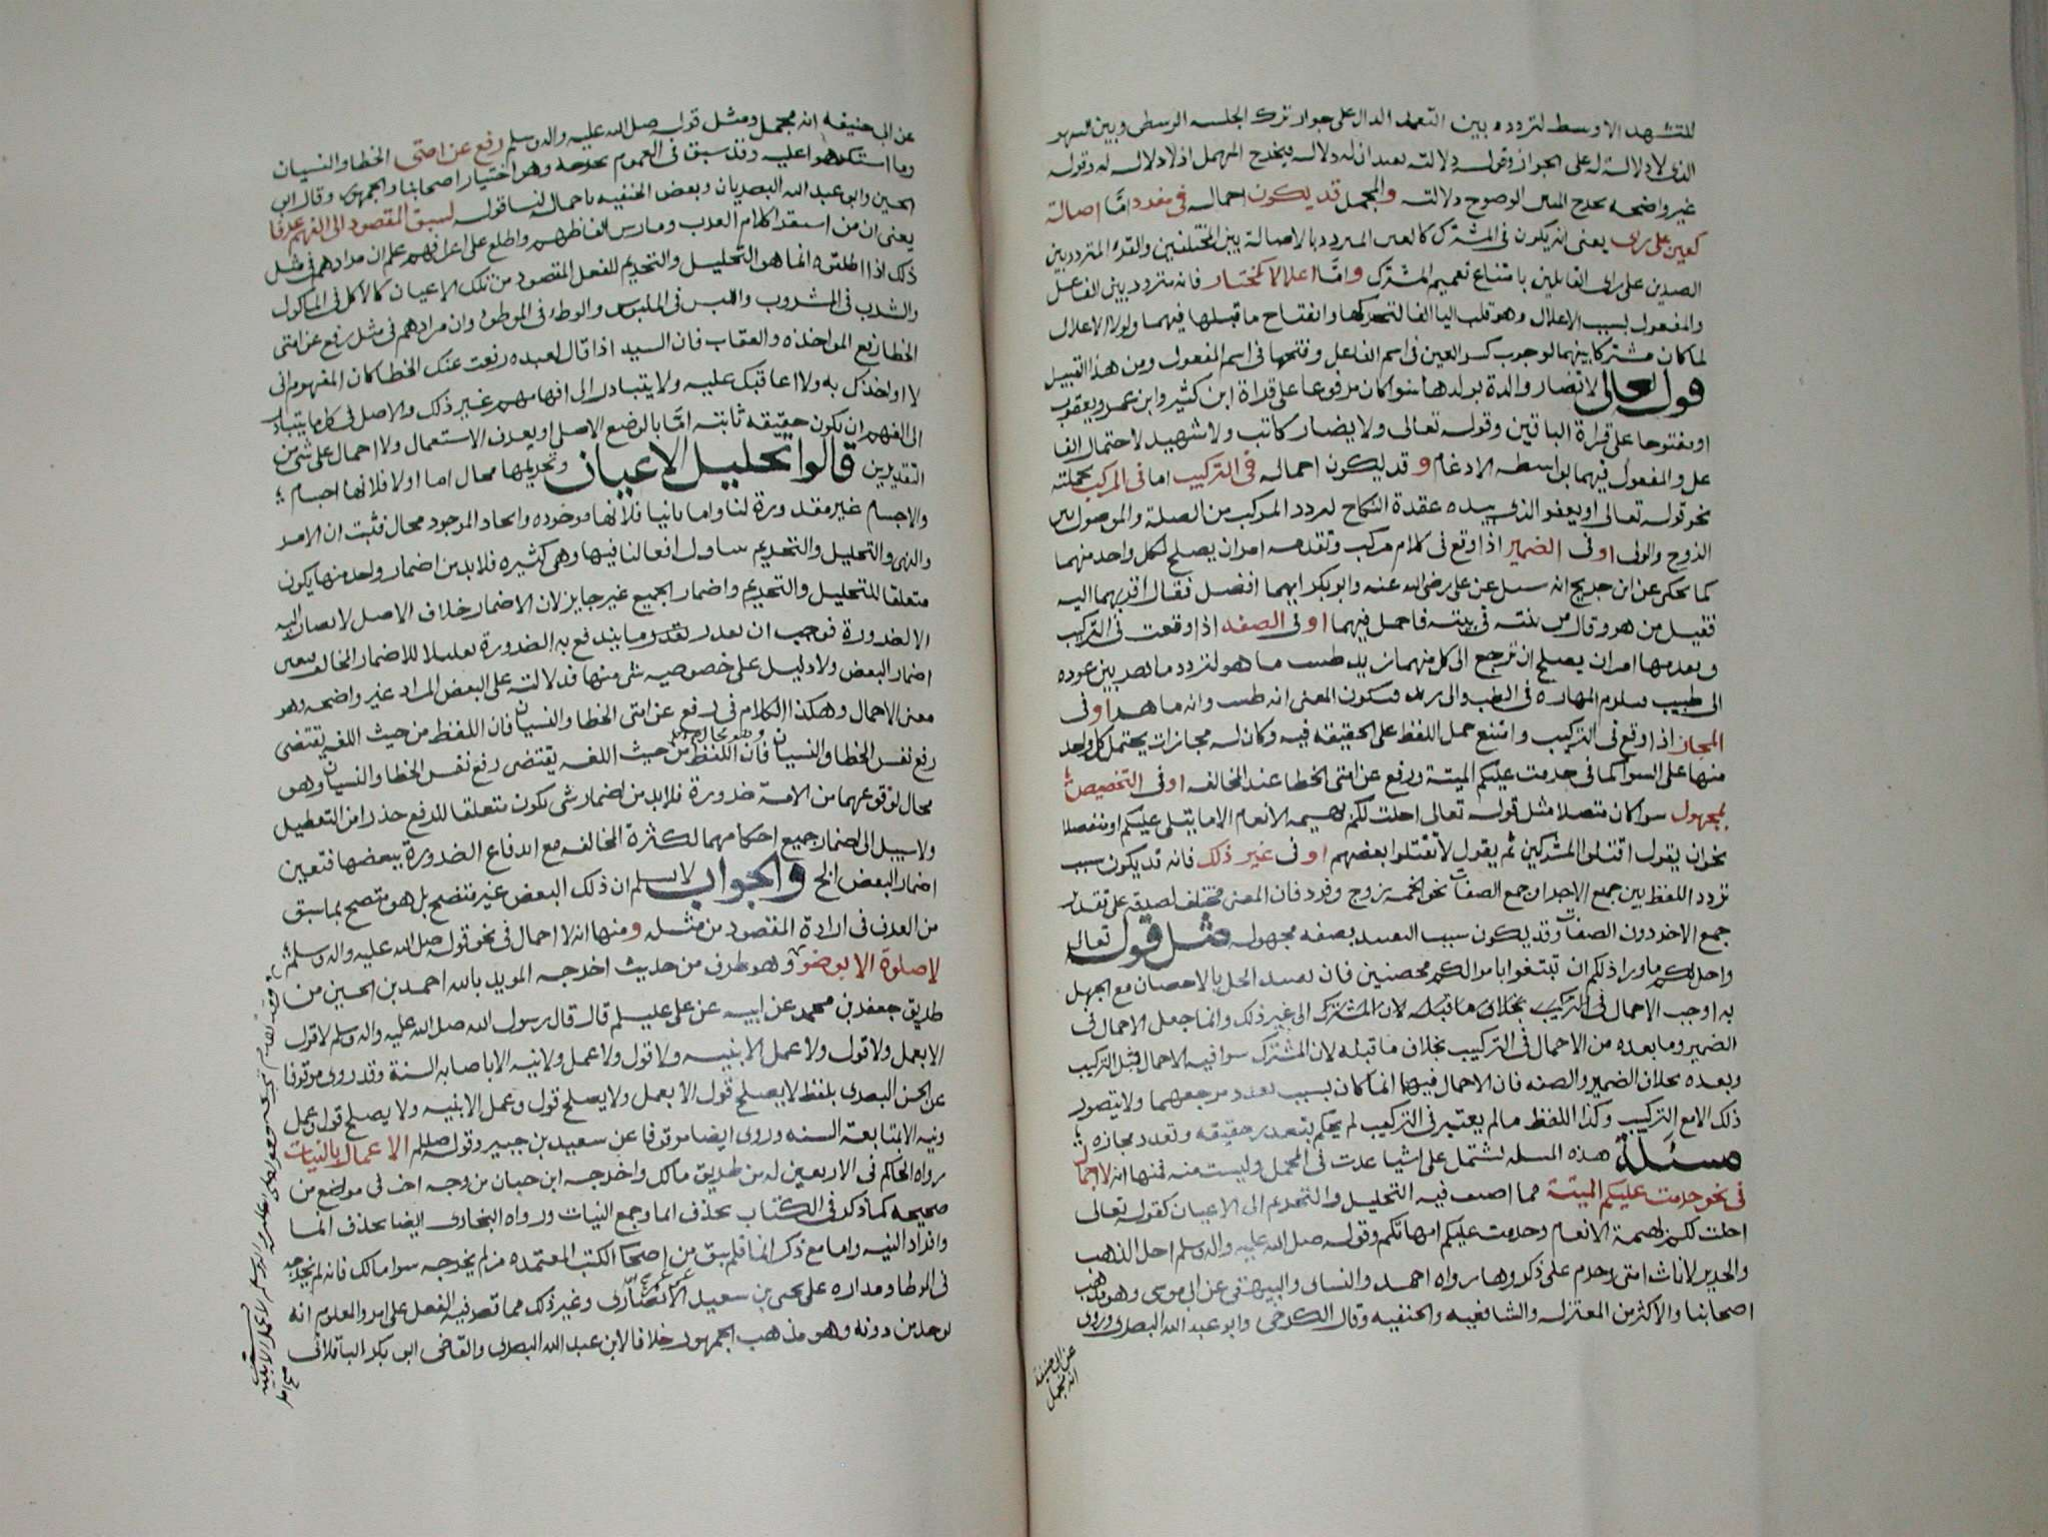 للتشهد الاوسط لتردده بين التعمد الدال على جواز ترك الجلسه الوسطى وبين السهو
الذى لا دلالة له على الجواز وقوله دلالته بعد ان له دلاله يخرج المهمل اذ لا دلاله له وقوله
غير واضحه يخرج المبين لوضوح دلالته والمجمل قد يكون اجماله فى مفرد اما اصالة
كعين على راى يعنى انه يكون فى المشترك كالعين المتردد بالاصالة بين المختلفين والقرء المتردد بين
الضدين على راى القايلين بامتناع تعميم المشترك واما اعلالا كمختار فانه متردد بين الفاعل
والمفعول بسبب الاعلال وهو قلب اليا الفا لتحركها وانفتاح ما قبلها فيهما ولولا الاعلال
لما كان مشتركا بينهما لوجوب كسر العين فى اسم الفاعل وفتحها فى اسم المفعول ومن هذا القبيل
قوله تعالى لا تضار والدة بولدها سوا كان مرفوعا على قراة ابن كثير وابن عمرو ويعقوب
او مفتوحا على قراة الباقين وقوله تعالى ولا يضار كاتب ولا شهيد لاحتمال الفا
عل والمفعول فيهما بواسطه الادغام وقد يكون اجماله فى التركيب اما فى المركب بجملته
نحو قوله تعالى او يعفو الذى بيده عقدة النكاح لتردد المركب من الصلة والموصول بين
الزوج والولى او فى الضمير اذا وقع فى كلام مركب وتقدمه امران يصلح لكل واحد منهما
كما يحكى عن ابن جريج انه سيل عن على رضى الله عنه وابو بكر ايهما افضل فقال اقربهما اليه
فقيل من هو وقال من بنته فى بيته فاجمل فيهما او فى الصفه اذا وقعت فى التركيب
وبعدمها امران يصلح ان ترجع الى كل منهما زيد طبيب ماهر لتردد ماهر بين عوده
الى طبيب فيلزم المهاره فى الطب والى زيد فيكون المعنى انه طبيب وانه ماهر او فى
المجاز اذا وقع فى التركيب وامتنع حمل اللفظ على الحقيقه فيه وكان له مجازات يحتمل كل واحد
منها على السوا كما فى حرمت عليكم الميتة ورفع عن امتى الخطا عند المخالف او فى التخصيص
بمجهول سوا كان متصلا مثل قوله تعالى احلت لكم بهيمه الانعام الا ما يتلى عليكم او منفصلا
نحو ان يقول اقتلوا المشركين ثم يقول لا تقتلوا بعضهم او فى غير ذلك فانه قد يكون سبب
تردد اللفظ بين جمع الاجزا وجمع الصفات نحو الخمسه زوج وفرد فان المعنى مختلف لصدقه على تقدير
جمع الاجزا دون الصفات وقد يكون سببا التقييد بصفه مجهوله مثل قوله تعالى
واحل لكم ما ورا ذلكم ان تبتغوا باموالكم محصنين فان تقييد الحل بالاحصان مع الجهل
به اوجب الاجمال فى التركيب بخلاف ما قبله لان المشترك الى غير ذلك وانما جعل الاجمال فى
الضمير وما بعده من الاجمال فى التركيب بخلاف ما قبله لان المشترك سوا فيه الاجمال قبل التركيب
وبعده بخلاف الضمير والصفه فان الاجمال فيهما انما كان بسبب تعدد مرجعهما ولا يتصور
ذلك الا مع التركيب وكذا اللفظ ما لم يعتبر فى التركيب لم يحكم بتعذر حقيقه وتعدد مجازه
مسئلة هذه المسله تشتمل على اشيا عدت فى المجمل وليست منه فمنها انه لا اجمال
فى نحو حرمت عليكم الميتة مما اضيف فيه التحليل والتحريم الى الاعيان كقوله تعالى
احلت لكم بهيمة الانعام وحرمت عليكم امهاتكم وقوله صلى الله عليه واله وسلم احل الذهب
والحرير لاناث امتى وحرم على ذكورها رواه احمد والنساى والبيهقى عن ابى موسى وهو مذهب
اصحابنا والاكثر من المعتزله والشافعيه والحنفيه وقال الكرخى وابو عبد الله البصرى وروى
عن ابى حنيفة
انه مجمل
عن ابى حنيفه انه مجمل ومثل قوله صلى الله عليه واله وسلم رفع عن امتى الخطا والنسيان
وما استكرهوا عليه وقد سبق فى العموم تخريجه وهو اختيار اصحابنا والجمهور وقال ابو
الحسين وابو عبد الله البصريان وبعض الحنفيه باجماله لنا قوله لسبق المقصود الى الفهم عرفا
يعنى ان من استقرا كلام العرب ومارس الفاظهم واطلع على اعرافهم علم ان مرادهم فى مثل
ذلك اذا اطلقوه انما هو التحليل والتحريم للفعل المقصود من تلك الاعيان كالاكل فى الماكول
والشرب فى المشروب واللبس فى الملبوس والوطء فى الموطوء وان مرادهم فى مثل رفع عن امتى
الخطا رفع المواخذه والعقاب فان السيد اذا قال لعبده رفعت عنك الخطا كان المفهوم انى
لا اواخذك به ولا اعاقبك عليه ولا يتبادر الى افهامهم غير ذلك والاصل فى كل ما يتبادر
الى الفهم ان يكون حقيقه ثابته اما بالوضع الاصلى او بعرف الاستعمال ولا اجمال على شى من
التقديرين قالوا تحليل الاعيان وتحريمها محال اما اولا فلانها اجسام
والاجسام غير مقدورة لنا واما ثانيا فلانها موجوده وايجاد الموجود محال فثبت ان الامر
والنهى والتحليل والتحريم يتناول افعالنا فيها وهى كثيره فلا بد من اضمار واحد منها يكون
متعلقا للتحليل والتحريم واضمار الجميع غير جايز لان الاضمار خلاف الاصل لا يصار اليه
الا لضرورة فوجب ان يقدر بقدر ما يندفع به الضرورة تقليلا للاضمار المخالف فتعين
اضمار البعض ولا دليل على خصوصيه شى منها فدلالته على البعض المراد غير واضحه وهو
معنى الاجمال وهكذا الكلام فى رفع عن امتى الخطا والنسيان فان اللفظ من حيث اللغه يقتضى
رفع نفس الخطا والنسيان فان اللفظ من حيث اللغه يقتضى رفع نفس الخطا والنسيان وهو
محال لوقوعهما من الامة ضرورة فلا بد من اضمار شى يكون متعلقا للرفع حذرا من التعطيل
ولا سبيل الى اضمار جميع احكامهما لكثرة المخالفه مع اندفاع الضرورة ببعضها فتعين
اضمار البعض الخ والجواب لا نسلم ان ذلك البعض غير متضح بل هو متضح بما سبق
من العرف فى ارادة المقصود من مثله ومنها انه لا اجمال فى نحو قوله صلى الله عليه واله وسلم
لا صلوة الا بوضو وهو طرف من حديث اخرجه المويد بالله احمد بن الحسين من
طريق جعفر بن محمد عن ابيه عن على عليلم قال قال رسول الله صلى الله عليه واله وسلم لا قول
الا بعمل ولا قول ولا عمل الا بنيه ولا قول ولا عمل ولا نيه الا باصابه السنة وقد روى موقوفا
عن الحسن البصرى بلفظ لا يصلح قول الا بعمل ولا يصلح قول وعمل الا بنيه ولا يصلح قول وعمل
ونيه الا بمتابعة السنه وروى ايضا موقوفا عن سعيد بن جبير وقوله صللم الاعمال بالنيات
رواه الحاكم فى الاربعين له من طريق مالك واخرجه ابن حبان من وجه اخر فى مواضع من
صحيحه كما ذكر فى الكتاب بحذف انما وجمع النيات ورواه البخارى ايضا بحذف انما
وافراد النيه واما مع ذكر انما فلم يبق من اصحاب الكتب المعتمده من لم يخرجه سوا مالك فانه لم يخرجه
فى الموطا ومداره على يحيى بن سعيد الانصارى وغير ذلك مما نفى فيه الفعل على امر والمعلوم انه
يوجد من دونه وهو مذهب الجمهور خلافا لابى عبد الله البصرى والقاضى ابى بكر الباقلانى